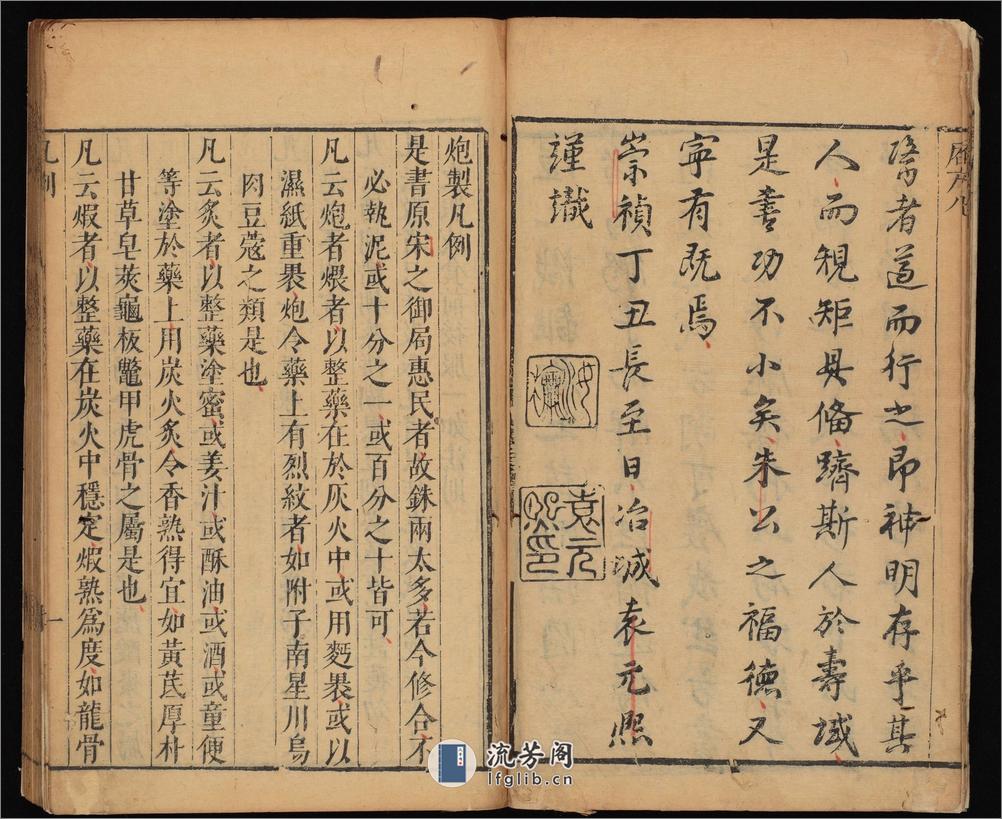 醫者道而行之即神明存乎其
人而規矩毋俻躋斯人於壽域
是書功不小矣朱公之福德又
寕有既焉
崇禎丁丑長至日冶城袁元熙
謹識
袁元
熙印
炮製凡例
是書原宋之御局惠民者故銖兩太多若今修合不
必執泥或十分之一或百分之十皆可
凡云炮者煨者以整藥在於灰火中或用麪裹或以
濕紙重裹炮令藥上有烈紋者如附子南星川烏
肉豆蔻之類是也
凡云炙者以整藥塗蜜或姜汁或酥油或酒或童便
等塗於藥上用炭火炙令香熟得宜如黃芪厚朴
甘草皂莢龜板鼈甲虎骨之屬是也
凡云煆者以整藥在炭火中穩定煆熟爲度如龍骨
凡例
一
流芳阁
lfglib.cn